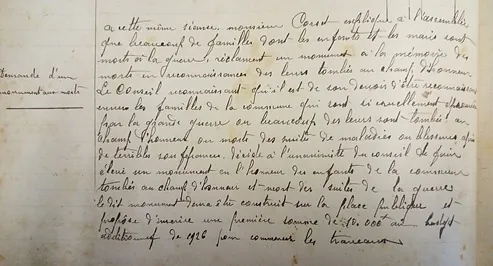 a cette même séance monsieur Corset explique à l'assemblée
que beaucoup de familles dont les enfants et les maris sont
morts à la guerre, réclament un monument à la mémoire des
Demande d'un
monument aux morts
morts en reconnaissances des leurs tombés au champ d'honneur
Le Conseil reconnaissant qu'il est de son devoir d'être reconnaissant
envers les familles de la commune qui sont si cruellement
par la grande guerre ou beaucoup des leurs sont tombés au
champ d'honneur ou morts des suites de maladies ou blessures
de terribles souffrances, décide à l'unanimité du conseil de faire
élever un monument en l'honneur des enfants de la commune
tombés au champ d'honneur et mort des suites de la guerre
le dit monument devra être construit sur la place publique et
propose d'inscrire une première somme de 10.000 au budget
additionnel de 1926 pour commencer les travaux